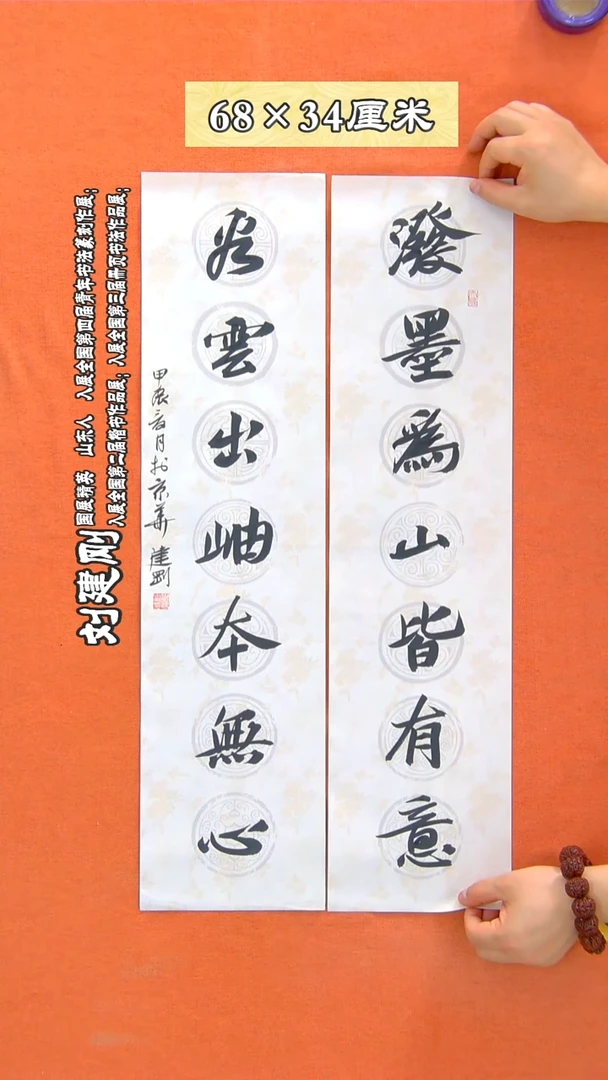 68×34厘米
潑墨爲山皆有意
看雲出岫本無心
甲辰月於京華 建剛
刘建刚
国展精英 山东人 入展全国第四届青年书法篆刻作展；
入展全国第二届楷书作品展；入展全国第三届册页书法作品展；